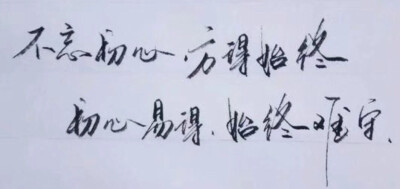 不忘初心 方得始终
初心易得、始终难守、